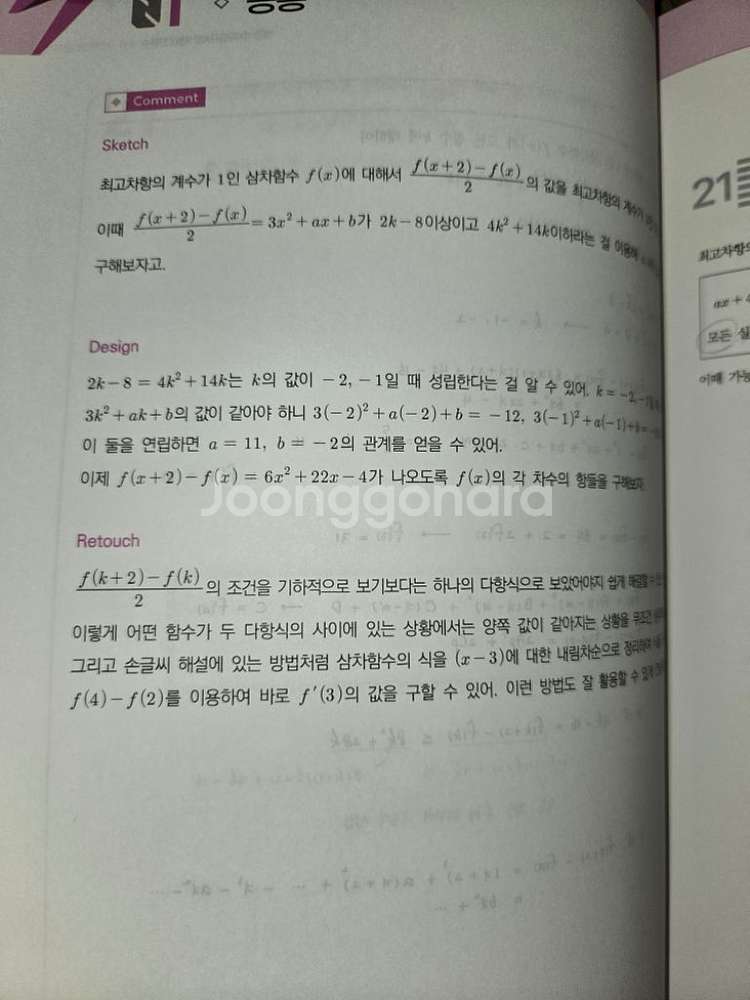 Comment
Sketch
최고차항의 계수가 1인 삼차함수 f(x)에 대해서 \frac{f(x+2)-f(x)}{2}의 값을 최고차항의 계수가
이때 \frac{f(x+2)-f(x)}{2} = 3x² + ax + b가 2k-8이상이고 4k² + 14k이하라는 걸 이용해
구해보자고.
Design
2k-8 = 4k² + 14k는 k의 값이 -2, -1일 때 성립한다는 걸 알 수 있어. k = -2, -1
3k² + ak + b의 값이 같아야 하니 3(-2)² + a(-2) + b = -12, 3(-1)² + a(-1) + b =
이 둘을 연립하면 a = 11, b = -2의 관계를 얻을 수 있어.
이제 f(x+2) - f(x) = 6x² + 22x - 4가 나오도록 f(x)의 각 차수의 항들을 구해보자.
Joonggonara
Retouch
\frac{f(k+2)-f(k)}{2}의 조건을 기하적으로 보기보다는 하나의 다항식으로 보았어야지 쉽게 해결할 수
이렇게 어떤 함수가 두 다항식의 사이에 있는 상황에서는 양쪽 값이 같아지는 상황을 무조건
그리고 손글씨 해설에 있는 방법처럼 삼차함수의 식을 (x-3)에 대한 내림차순으로 정리하여
f(4) - f(2)를 이용하여 바로 f'(3)의 값을 구할 수 있어. 이런 방법도 잘 활용할 수 있게
21
최고차항의
ax + 4
모든 실
이때 가능